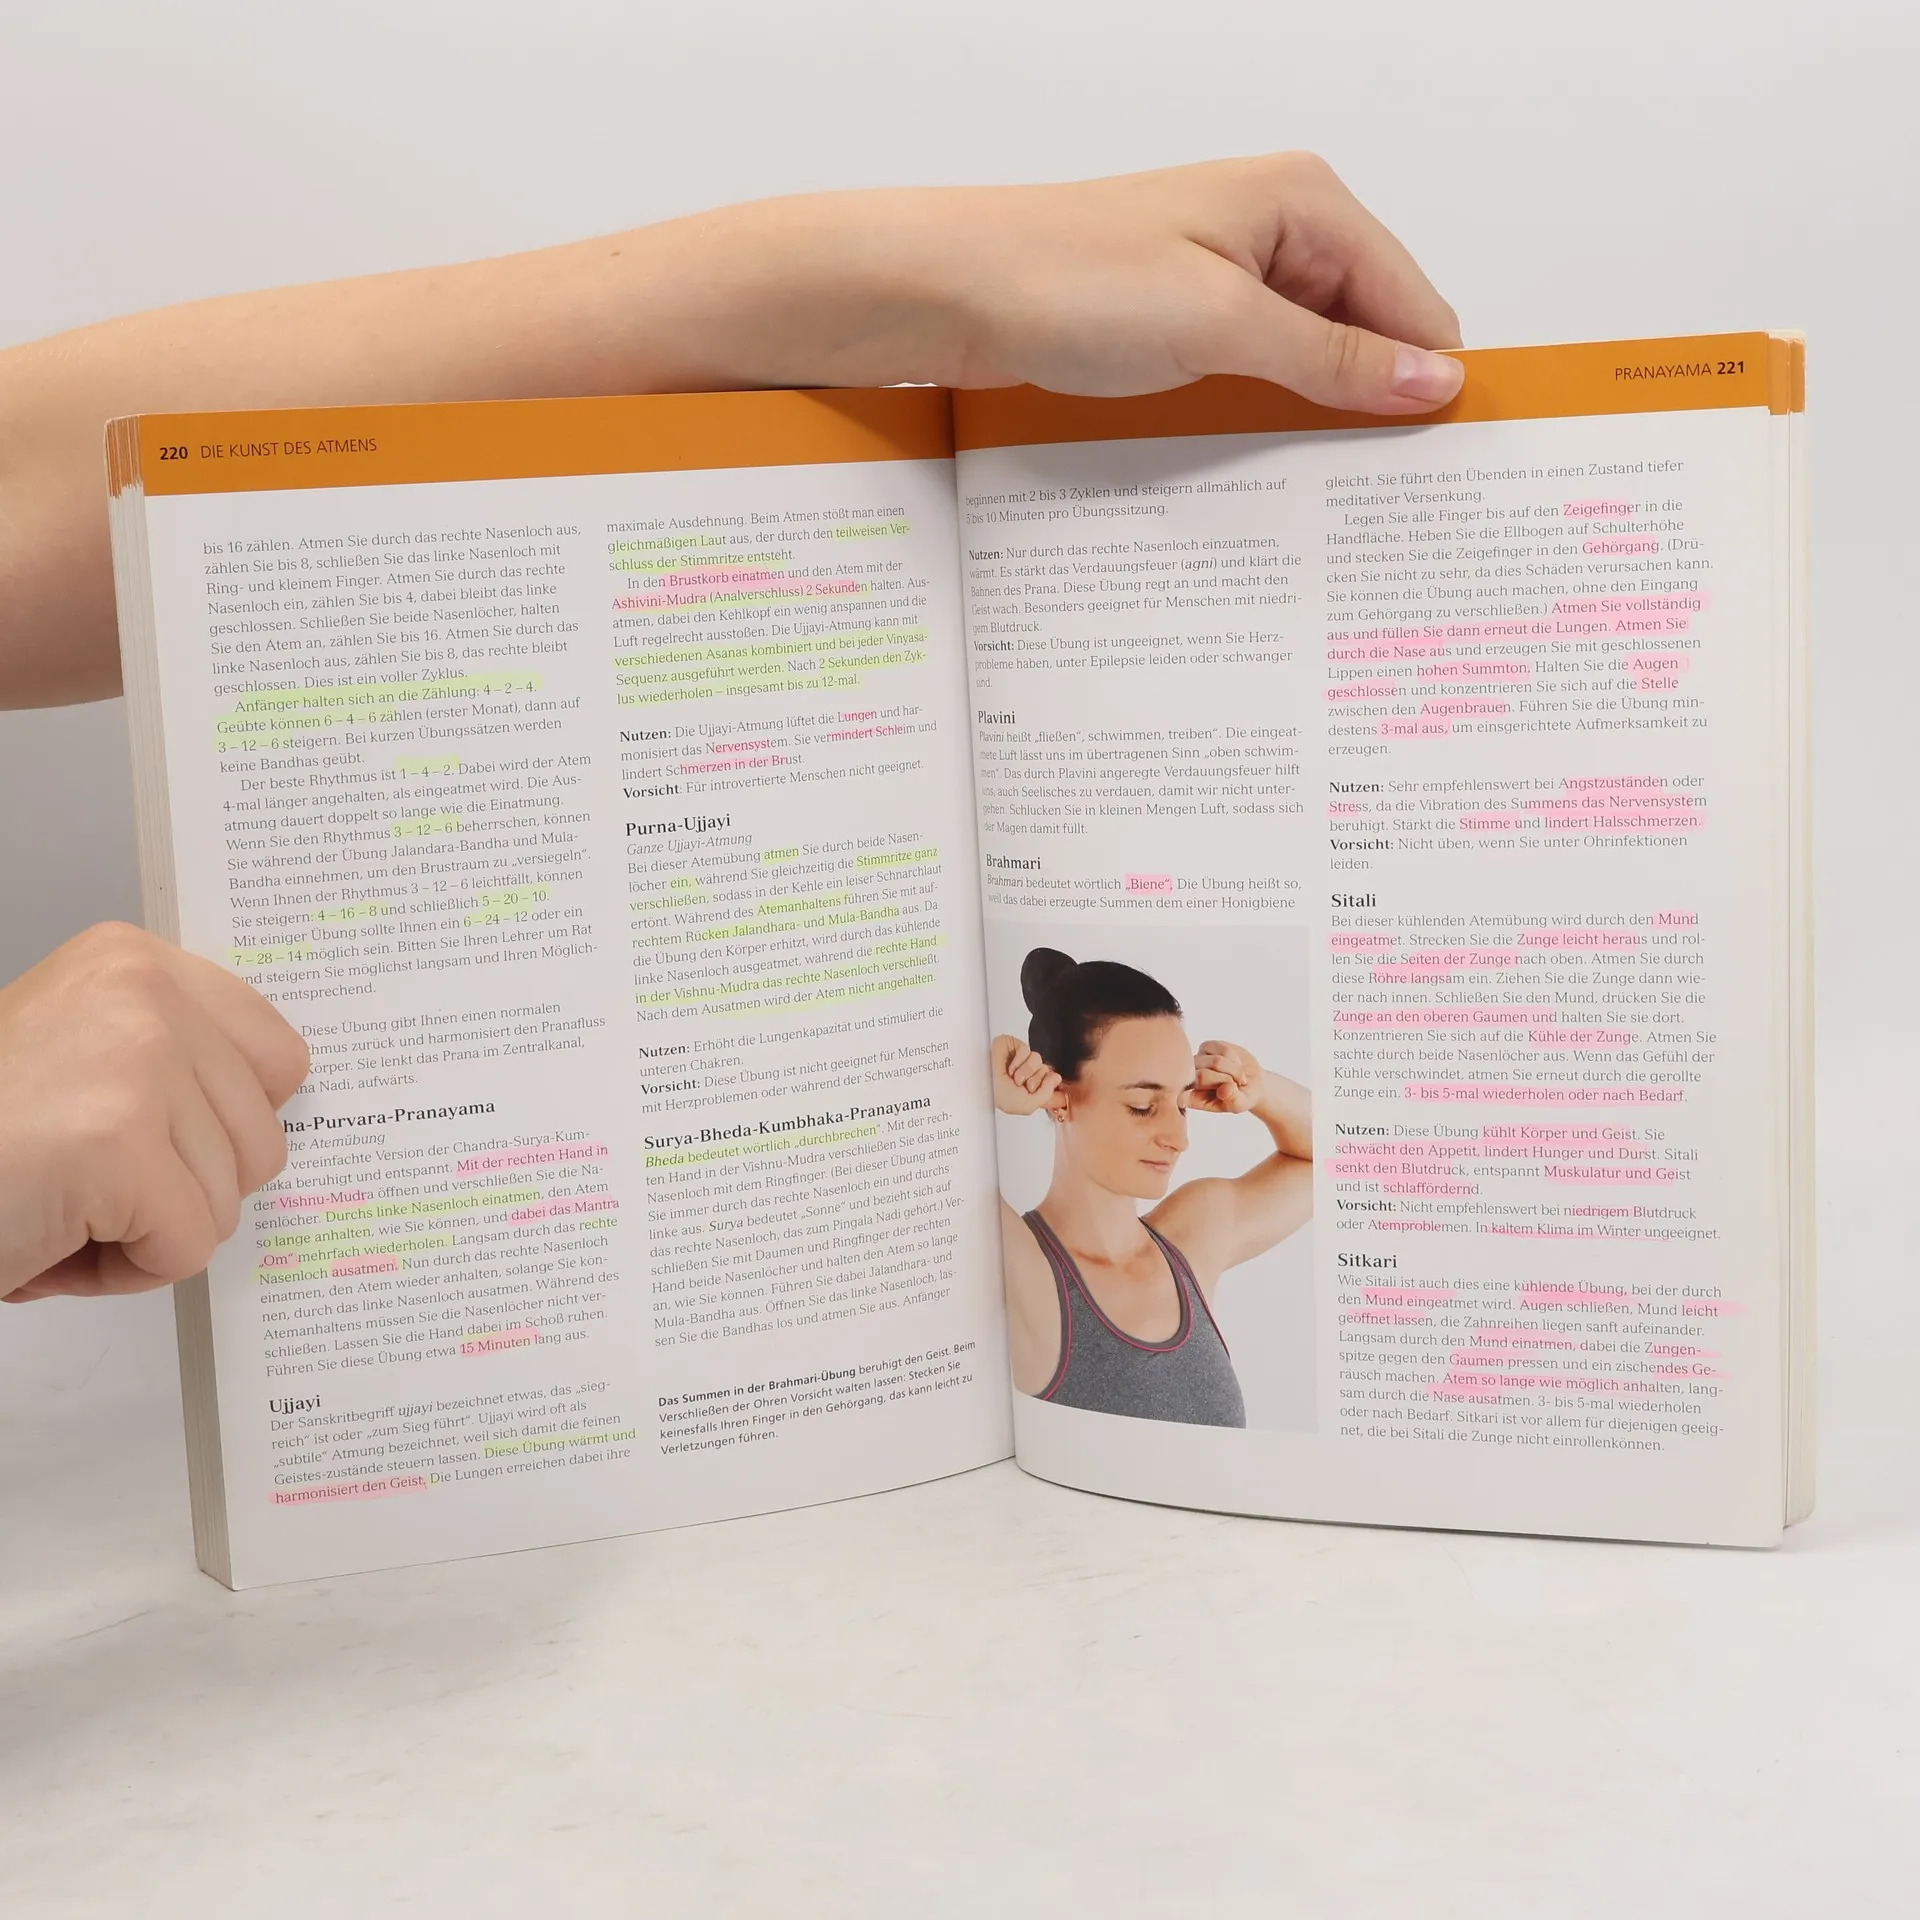 220 DIE KUNST DES ATMENS
bis 16 zählen. Atmen Sie durch das rechte Nasenloch aus,
zählen Sie bis 8, schließen Sie das linke Nasenloch mit
Ring- und kleinem Finger. Atmen Sie durch das rechte
Nasenloch ein, zählen Sie bis 4, dabei bleibt das linke
geschlossen. Schließen Sie beide Nasenlöcher, halten
Sie den Atem an, zählen Sie bis 16. Atmen Sie durch das
linke Nasenloch aus, zählen Sie bis 8, das rechte bleibt
geschlossen. Dies ist ein voller Zyklus.
Anfänger halten sich an die Zählung: 4 – 2 – 4.
Geübte können 6 – 4 – 6 zählen (erster Monat), dann auf
3 – 12 – 6 steigern. Bei kurzen Übungssätzen werden
keine Bandhas geübt.
Der beste Rhythmus ist 1 – 4 – 2. Dabei wird der Atem
4-mal länger angehalten, als eingeatmet wird. Die Aus-
atmung dauert doppelt so lange wie die Einatmung.
Wenn Sie den Rhythmus 3 – 12 – 6 beherrschen, können
Sie während der Übung Jalandara-Bandha und Mula-
Bandha einnehmen, um den Brustraum zu „versiegeln“.
Wenn Ihnen der Rhythmus 3 – 12 – 6 leichtfällt, können
Sie steigern: 4 – 16 – 8 und schließlich 5 – 20 – 10.
Mit einiger Übung sollte Ihnen ein 6 – 24 – 12 oder ein
7 – 28 – 14 möglich sein. Bitten Sie Ihren Lehrer um Rat
und steigern Sie möglichst langsam und Ihren Möglich-
en entsprechend.
Diese Übung gibt Ihnen einen normalen
thmus zurück und harmonisiert den Pranafluss
örper. Sie lenkt das Prana im Zentralkanal,
na Nadi, aufwärts.
ha-Purvara-Pranayama
che Atemübung
vereinfachte Version der Chandra-Surya-Kum-
haka beruhigt und entspannt. Mit der rechten Hand in
der Vishnu-Mudra öffnen und verschließen Sie die Na-
senlöcher. Durchs linke Nasenloch einatmen, den Atem
so lange anhalten, wie Sie können, und dabei das Mantra
„Om“ mehrfach wiederholen. Langsam durch das rechte
Nasenloch ausatmen. Nun durch das rechte Nasenloch
einatmen, den Atem wieder anhalten, solange Sie kön-
nen, durch das linke Nasenloch ausatmen. Während des
Atemanhaltens müssen Sie die Nasenlöcher nicht ver-
schließen. Lassen Sie die Hand dabei im Schoß ruhen.
Führen Sie diese Übung etwa 15 Minuten lang aus.
Ujjayi
Der Sanskritbegriff ujjayi bezeichnet etwas, das „sieg-
reich“ ist oder „zum Sieg führt“. Ujjayi wird oft als
„subtile“ Atmung bezeichnet, weil sich damit die feinen
Geistes-zustände steuern lassen. Diese Übung wärmt und
harmonisiert den Geist. Die Lungen erreichen dabei ihre
maximale Ausdehnung. Beim Atmen stößt man einen
gleichmäßigen Laut aus, der durch den teilweisen Ver-
schluss der Stimmritze entsteht.
In den Brustkorb einatmen und den Atem mit der
Ashivini-Mudra (Analverschluss) 2 Sekunden halten. Aus-
atmen, dabei den Kehlkopf ein wenig anspannen und die
Luft regelrecht ausstoßen. Die Ujjayi-Atmung kann mit
verschiedenen Asanas kombiniert und bei jeder Vinyasa-
Sequenz ausgeführt werden. Nach 2 Sekunden den Zyk-
lus wiederholen – insgesamt bis zu 12-mal.
Nutzen: Die Ujjayi-Atmung lüftet die Lungen und har-
monisiert das Nervensystem. Sie vermindert Schleim und
lindert Schmerzen in der Brust.
Vorsicht: Für introvertierte Menschen nicht geeignet.
Purna-Ujjayi
Ganze Ujjayi-Atmung
Bei dieser Atemübung atmen Sie durch beide Nasen-
löcher ein, während Sie gleichzeitig die Stimmritze ganz
verschließen, sodass in der Kehle ein leiser Schnarchlaut
ertönt. Während des Atemanhaltens führen Sie mit auf-
rechtem Rücken Jalandhara- und Mula-Bandha aus. Da
die Übung den Körper erhitzt, wird durch das kühlende
linke Nasenloch ausgeatmet, während die rechte Hand
in der Vishnu-Mudra das rechte Nasenloch verschließt.
Nach dem Ausatmen wird der Atem nicht angehalten.
Nutzen: Erhöht die Lungenkapazität und stimuliert die
unteren Chakren.
Vorsicht: Diese Übung ist nicht geeignet für Menschen
mit Herzproblemen oder während der Schwangerschaft.
Surya-Bheda-Kumbhaka-Pranayama
Bheda bedeutet wörtlich „durchbrechen“. Mit der rech-
ten Hand in der Vishnu-Mudra verschließen Sie das linke
Nasenloch mit dem Ringfinger. (Bei dieser Übung atmen
Sie immer durch das rechte Nasenloch ein und durchs
linke aus. Surya bedeutet „Sonne“ und bezieht sich auf
das rechte Nasenloch, das zum Pingala Nadi gehört.) Ver-
schließen Sie mit Daumen und Ringfinger der rechten
Hand beide Nasenlöcher und halten den Atem so lange
an, wie Sie können. Führen Sie dabei Jalandhara- und
Mula-Bandha aus. Öffnen Sie das linke Nasenloch, las-
sen Sie die Bandhas los und atmen Sie aus. Anfänger
Das Summen in der Brahmari-Übung beruhigt den Geist. Beim
Verschließen der Ohren Vorsicht walten lassen: Stecken Sie
keinesfalls Ihren Finger in den Gehörgang, das kann leicht zu
Verletzungen führen.
PRANAYAMA 221
beginnen mit 2 bis 3 Zyklen und steigern allmählich auf
5 bis 10 Minuten pro Übungssitzung.
Nutzen: Nur durch das rechte Nasenloch einzuatmen,
wärmt. Es stärkt das Verdauungsfeuer (agni) und klärt die
Bahnen des Prana. Diese Übung regt an und macht den
Geist wach. Besonders geeignet für Menschen mit niedri-
gem Blutdruck.
Vorsicht: Diese Übung ist ungeeignet, wenn Sie Herz-
probleme haben, unter Epilepsie leiden oder schwanger
sind.
Plavini
Plavini heißt „fließen“, schwimmen, treiben“. Die eingeat-
mete Luft lässt uns im übertragenen Sinn „oben schwim-
men“. Das durch Plavini angeregte Verdauungsfeuer hilft
uns, auch Seelisches zu verdauen, damit wir nicht unter-
gehen. Schlucken Sie in kleinen Mengen Luft, sodass sich
der Magen damit füllt.
Brahmari
Brahmari bedeutet wörtlich „Biene“. Die Übung heißt so,
weil das dabei erzeugte Summen dem einer Honigbiene
gleicht. Sie führt den Übenden in einen Zustand tiefer
meditativer Versenkung.
Legen Sie alle Finger bis auf den Zeigefinger in die
Handfläche. Heben Sie die Ellbogen auf Schulterhöhe
und stecken Sie die Zeigefinger in den Gehörgang. (Drü-
cken Sie nicht zu sehr, da dies Schäden verursachen kann.
Sie können die Übung auch machen, ohne den Eingang
zum Gehörgang zu verschließen.) Atmen Sie vollständig
aus und füllen Sie dann erneut die Lungen. Atmen Sie
durch die Nase aus und erzeugen Sie mit geschlossenen
Lippen einen hohen Summton. Halten Sie die Augen
geschlossen und konzentrieren Sie sich auf die Stelle
zwischen den Augenbrauen. Führen Sie die Übung min-
destens 3-mal aus, um einsgerichtete Aufmerksamkeit zu
erzeugen.
Nutzen: Sehr empfehlenswert bei Angstzuständen oder
Stress, da die Vibration des Summens das Nervensystem
beruhigt. Stärkt die Stimme und lindert Halsschmerzen.
Vorsicht: Nicht üben, wenn Sie unter Ohrinfektionen
leiden.
Sitali
Bei dieser kühlenden Atemübung wird durch den Mund
eingeatmet. Strecken Sie die Zunge leicht heraus und rol-
len Sie die Seiten der Zunge nach oben. Atmen Sie durch
diese Röhre langsam ein. Ziehen Sie die Zunge dann wie-
der nach innen. Schließen Sie den Mund, drücken Sie die
Zunge an den oberen Gaumen und halten Sie sie dort.
Konzentrieren Sie sich auf die Kühle der Zunge. Atmen Sie
sachte durch beide Nasenlöcher aus. Wenn das Gefühl der
Kühle verschwindet, atmen Sie erneut durch die gerollte
Zunge ein. 3- bis 5-mal wiederholen oder nach Bedarf.
Nutzen: Diese Übung kühlt Körper und Geist. Sie
schwächt den Appetit, lindert Hunger und Durst. Sitali
senkt den Blutdruck, entspannt Muskulatur und Geist
und ist schlaffördernd.
Vorsicht: Nicht empfehlenswert bei niedrigem Blutdruck
oder Atemproblemen. In kaltem Klima im Winter ungeeignet.
Sitkari
Wie Sitali ist auch dies eine kühlende Übung, bei der durch
den Mund eingeatmet wird. Augen schließen, Mund leicht
geöffnet lassen, die Zahnreihen liegen sanft aufeinander.
Langsam durch den Mund einatmen, dabei die Zungen-
spitze gegen den Gaumen pressen und ein zischendes Ge-
räusch machen. Atem so lange wie möglich anhalten, lang-
sam durch die Nase ausatmen. 3- bis 5-mal wiederholen
oder nach Bedarf. Sitkari ist vor allem für diejenigen geeig-
net, die bei Sitali die Zunge nicht einrollenkönnen.